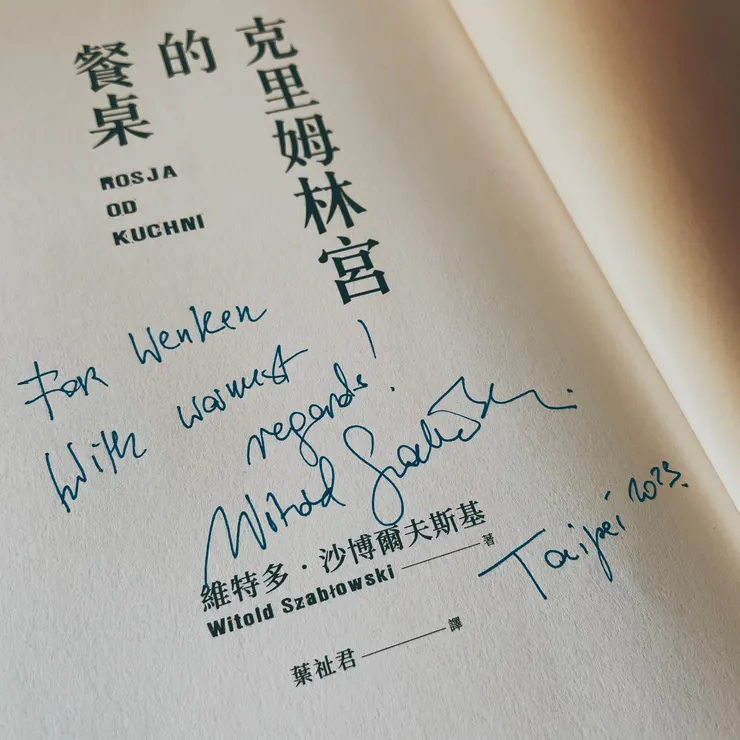 克里姆林宮
的
餐桌
ROSJA
OD
KUCHNI
For Wenken
With warmest
regards!
Witold Szabłowski
維特多・沙博爾夫斯基
著
Witold Szabłowski
Taipei 2023.
葉祉君
譯